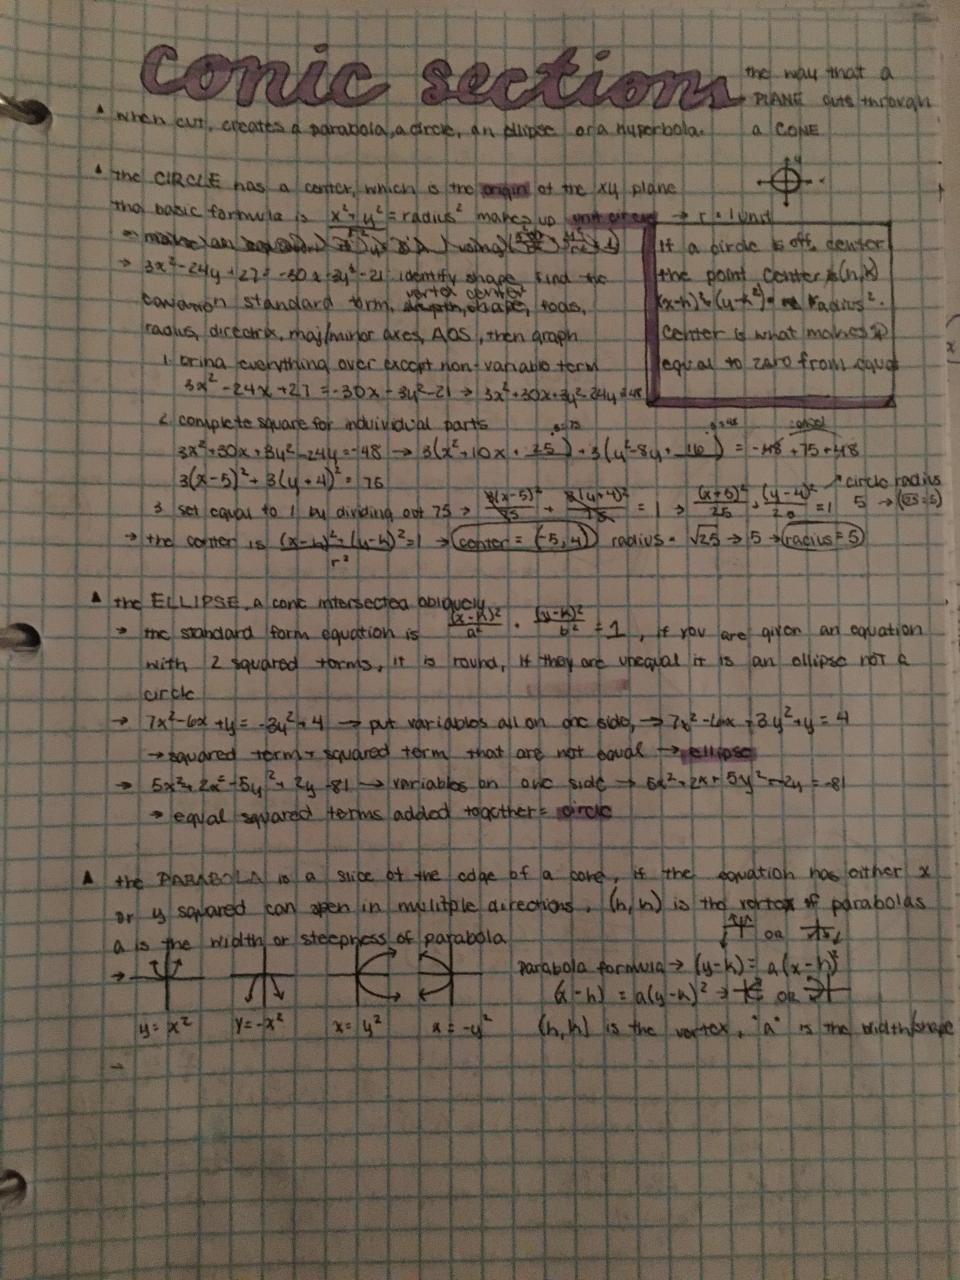 conic sections
the way that a
PLANE cuts through
a CONE
when cut, creates a parabola, a circle, an ellipse or a hyperbola.
the CIRCLE has a center, which is the origin of the xy plane
the basic formula is x² + y² = radius² makes up unit circle → r = 1 unit
→ 3x² - 24y + 27 = -30x - 3y² - 21 identify shape, find the
vertex center
equation standard form, shape, focis,
radius, directrix, maj/minor axes, AOS, then graph
If a circle is off center
the point center is (h,k)
(x-h)² + (y-k)² = radius².
center is what makes it
equal to zero from equa
1. bring everything over except non-variable term
3x² - 24x + 27 = -30x - 3y² - 21 → 3x² + 30x + 3y² - 24y = -48
2. complete square for individual parts
3x² + 30x + 3y² - 24y = -48 → 3(x² + 10x + 25) + 3(y² - 8y + 16) = -48 + 75 + 48
cancel
3(x-5)² + 3(y+4)² = 75
3. set equal to 1 by dividing out 75 → 3(x-5)²/75 + 3(y+4)²/75 = 1 → (x+5)²/25 + (y-4)²/25 = 1
circle radius
5 → (√25 = 5)
→ the center is (x-h)² + (y-k)²/r² = 1 → center = (-5, 4) radius = √25 → 5 → radius = 5
the ELLIPSE, a conic intersected obliquely
→ the standard form equation is (x-h)²/a² + (y-k)²/b² = 1, if you are given an equation
with 2 squared terms, it is round, if they are unequal it is an ellipse not a
circle
→ 7x² - 6x + y = -3y² + 4 → put variables all on one side, → 7x² - 6x + 3y² + y = 4
→ squared term + squared term that are not equal → ellipse
→ 5x² + 2x = -5y² + 2y - 81 → variables on one side → 5x² + 2x + 5y² - 2y = -81
→ equal squared terms added together = circle
the PARABOLA is a slice of the edge of a cone, if the equation has either x
or y squared can open in mulitple directions. (h,k) is the vertex of parabolas
a is the width or steepness of parabola
or
Parabola formula → (y-k) = a(x-h)²
(x-h) = a(y-k)² → or
y = x² y = -x² x = y² x = -y²
(h,k) is the vertex, "a" is the width/shape